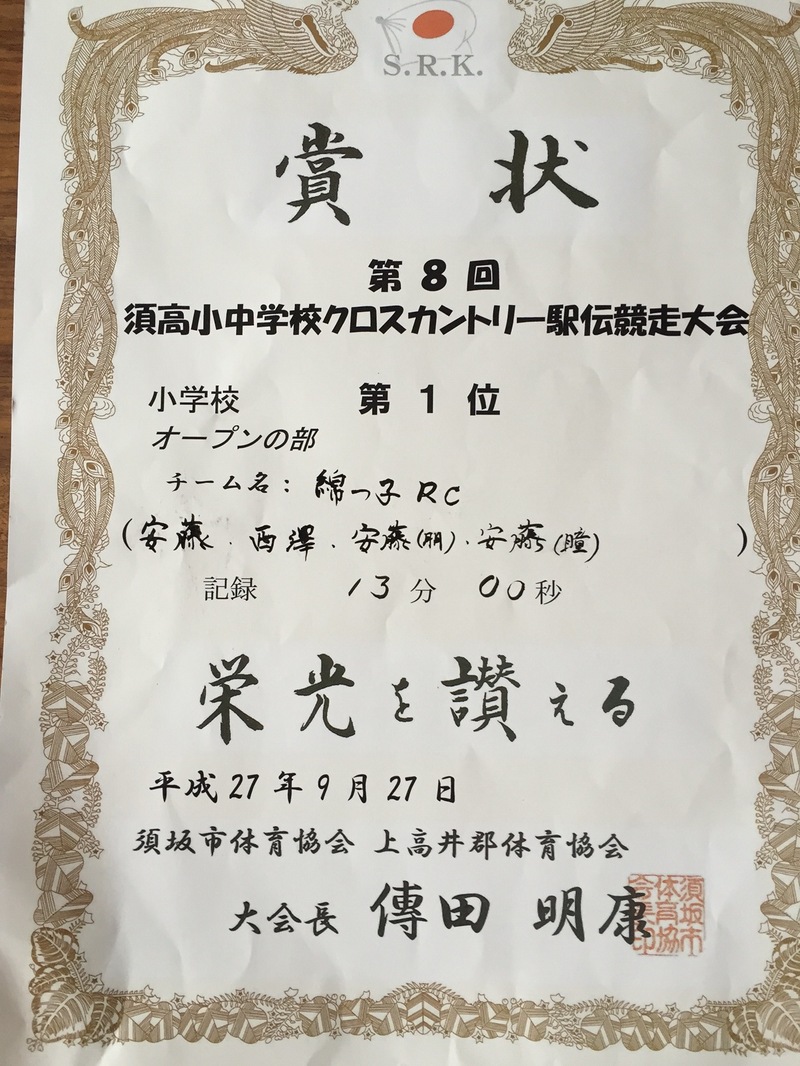 S.R.K.
賞状
第8回
須高小中学校クロスカントリー駅伝競走大会
小学校 第1位
オープンの部
チーム名：綿っ子RC
(安藤．西澤．安藤(明)．安藤(瞳))
記録 13分 00秒
栄光を讃える
平成27年9月27日
須坂市体育協会 上高井郡体育協会
大会長 傳田 明康
須坂市体育協会長印